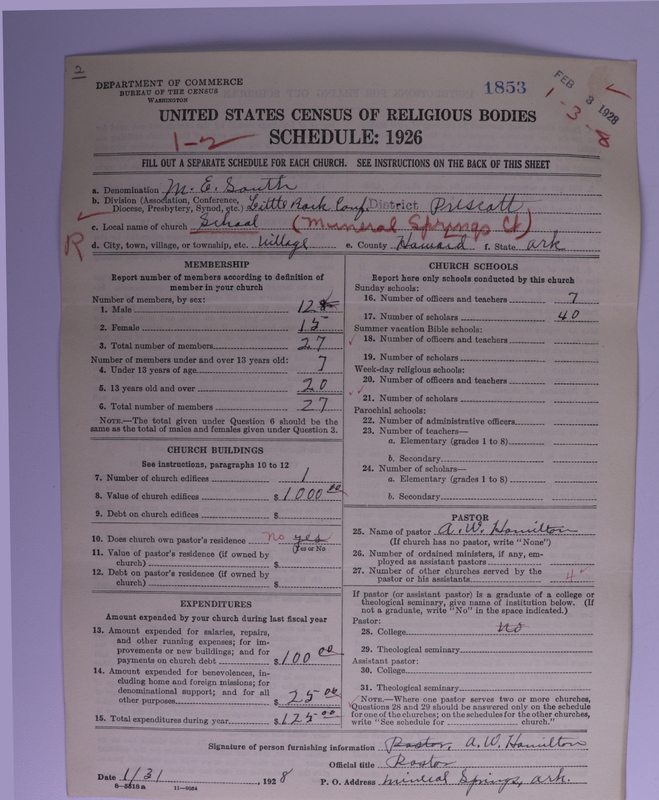 2
DEPARTMENT OF COMMERCE
BUREAU OF THE CENSUS
WASHINGTON
1853
FEB 3 1928
1-3-8
UNITED STATES CENSUS OF RELIGIOUS BODIES
1-2
SCHEDULE: 1926
FILL OUT A SEPARATE SCHEDULE FOR EACH CHURCH. SEE INSTRUCTIONS ON THE BACK OF THIS SHEET
a. Denomination M. E. South
b. Division (Association, Conference, Diocese, Presbytery, Synod, etc.) Little Rock Conf. District Prescott
c. Local name of church School (Mineral Springs Ct)
R
d. City, town, village, or township, etc. Village e. County Howard f. State Ark
MEMBERSHIP
Report number of members according to definition of
member in your church
Number of members, by sex:
1. Male 12
2. Female 15
3. Total number of members 27
Number of members under and over 13 years old:
4. Under 13 years of age 7
5. 13 years old and over 20
6. Total number of members 27
NOTE.—The total given under Question 6 should be the
same as the total of males and females given under Question 3.
CHURCH BUILDINGS
See instructions, paragraphs 10 to 12
7. Number of church edifices 1
8. Value of church edifices $1000 00
9. Debt on church edifices $
10. Does church own pastor's residence No yes
(Yes or No)
11. Value of pastor's residence (if owned by
church) $
12. Debt on pastor's residence (if owned by
church) $
EXPENDITURES
Amount expended by your church during last fiscal year
13. Amount expended for salaries, repairs,
and other running expenses; for im-
provements or new buildings; and for
payments on church debt $100 00
14. Amount expended for benevolences, in-
cluding home and foreign missions; for
denominational support; and for all
other purposes $25 00
15. Total expenditures during year $125 00
CHURCH SCHOOLS
Report here only schools conducted by this church
Sunday schools:
16. Number of officers and teachers 7
17. Number of scholars 40
Summer vacation Bible schools:
18. Number of officers and teachers
19. Number of scholars
Week-day religious schools:
20. Number of officers and teachers
21. Number of scholars
Parochial schools:
22. Number of administrative officers
23. Number of teachers—
a. Elementary (grades 1 to 8)
b. Secondary
24. Number of scholars—
a. Elementary (grades 1 to 8)
b. Secondary
PASTOR
25. Name of pastor A. W. Hamilton
(If church has no pastor, write "None")
26. Number of ordained ministers, if any, em-
ployed as assistant pastors
27. Number of other churches served by the
pastor or his assistants 4
If pastor (or assistant pastor) is a graduate of a college or
theological seminary, give name of institution below. (If
not a graduate, write "No" in the space indicated.)
Pastor:
28. College no
29. Theological seminary
Assistant pastor:
30. College
31. Theological seminary
NOTE.—Where one pastor serves two or more churches,
Questions 28 and 29 should be answered only on the schedule
for one of the churches; on the schedules for the other churches,
write "See schedule for church."
Signature of person furnishing information Pastor, A. W. Hamilton
Official title Pastor
Date 1/31, 1928 P. O. Address Mineral Springs, Ark.
8-5519a 11-9024